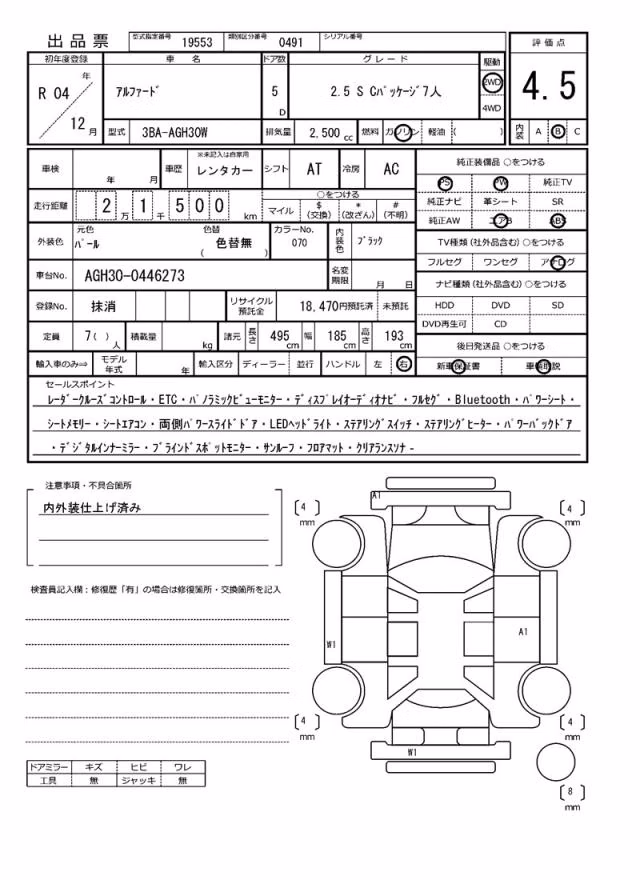 出品票
型式指定番号 19553 類別区分番号 0491 シリアル番号
評価点
4.5
初年度登録 車名 ドア数 グレード 駆動
R 04 年 12 月
アルファード 5 D 2.5 S Cパッケージ7人 2WD
4WD
型式 3BA-AGH30W 排気量 2,500 cc 燃料 ガソリン 軽油 ( )
内装 A B C
車検 年 月 車歴 ※未記入は自家用 レンタカー シフト AT 冷房 AC
走行距離 2 万 1 千 5 0 0 km
○をつける
マイル $(交換) *(改ざん) #(不明)
外装色 元色 パール 色替 色替無 ( ) カラーNo. 070 内装色 ブラック
車台No. AGH30-0446273 名変期限 月 日
登録No. 抹消 リサイクル預託金 18,470円預託済 未預託
定員 7( )人 積載量 kg 諸元 長さ 495 cm 幅 185 cm 高さ 193 cm
輸入車のみ⇒ モデル年式 年 輸入区分 ディーラー 並行 ハンドル 左 右
純正装備品 ○をつける
PS PW 純正TV
純正ナビ 革シート SR
純正AW エアB ABS
TV種類(社外品含む)○をつける
フルセグ ワンセグ アナログ
ナビ種類(社外品含む)○をつける
HDD DVD SD
DVD再生可 CD
後日発送品 ○をつける
新車保証書 車輌取説
セールスポイント
レーダークルーズコントロール・ETC・パノラミックビューモニター・ディスプレイオーディオナビ・フルセグ・Bluetooth・パワーシート・
シートメモリー・シートエアコン・両側パワースライドドア・LEDヘッドライト・ステアリングスイッチ・ステアリングヒーター・パワーバックドア
・デジタルインナーミラー・ブラインドスポットモニター・サンルーフ・フロアマット・クリアランスソナ-
注意事項・不具合箇所
内外装仕上げ済み
検査員記入欄:修復歴「有」の場合は修復箇所・交換箇所を記入
ドアミラー キズ ヒビ ワレ
工具 無 ジャッキ 無
A1
4 mm
4 mm
W1
A1
4 mm
4 mm
W1
8 mm